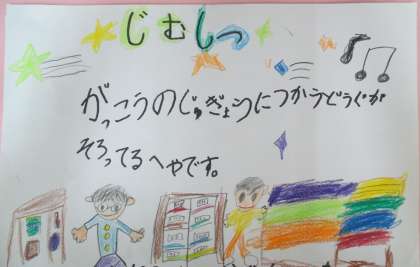 じむしつ
がっこうのじゅぎょうにつかうどうぐが
そろってるへやです。